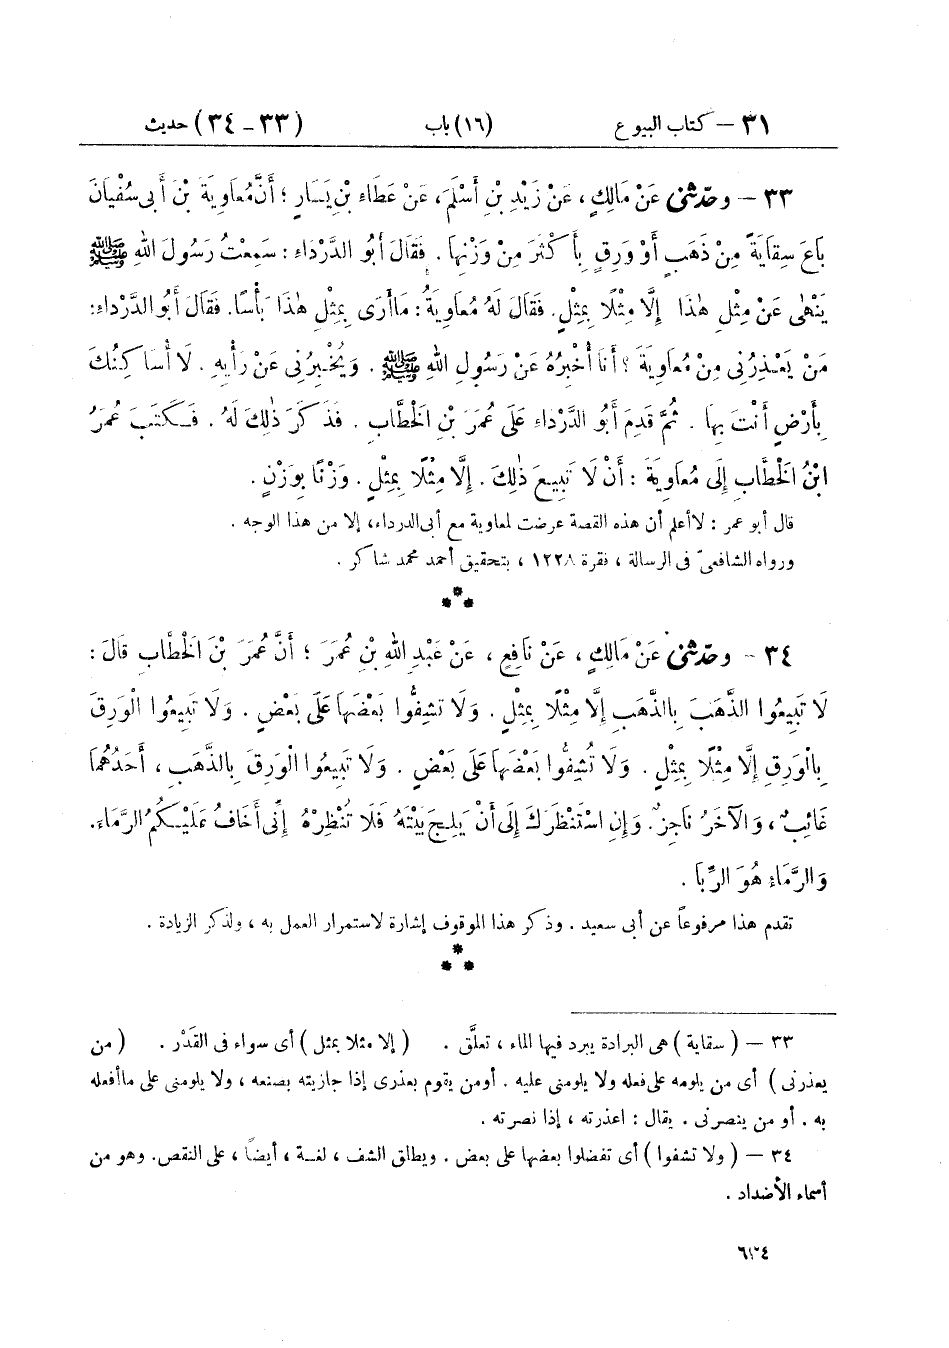 ٣١ – كتاب البيوع (١٦) باب (٣٣ – ٣٤) حديث
٣٣ – وحدّثنى عَنْ مَالِكٍ، عَنْ زَيْدِ بْنِ أَسْلَمَ، عَنْ عَطَاءِ بْنِ يَسَارٍ؛ أَنَّ مُعَاوِيَةَ بْنَ أَبِى سُفْيَانَ
بَاعَ سِقَايَةً مِنْ ذَهَبٍ أَوْ وَرِقٍ بِأَكْثَرَ مِنْ وَزْنِهَا. فَقَالَ أَبُو الدَّرْدَاءِ: سَمِعْتُ رَسُولَ اللهِ ﷺ
يَنْهَى عَنْ مِثْلِ هٰذَا إِلَّا مِثْلًا بِمِثْلٍ. فَقَالَ لَهُ مُعَاوِيَةُ: مَاأَرَى بِمِثْلِ هٰذَا بَأْسًا. فَقَالَ أَبُو الدَّرْدَاءِ:
مَنْ يَعْذِرُنِى مِنْ مُعَاوِيَةَ؟ أَنَا أُخْبِرُهُ عَنْ رَسُولِ اللهِ ﷺ. وَيُخْبِرُنِى عَنْ رَأْيِهِ. لَا أُسَاكِنُكَ
بِأَرْضٍ أَنْتَ بِهَا. ثُمَّ قَدِمَ أَبُو الدَّرْدَاءِ عَلَى عُمَرَ بْنِ الْخَطَّابِ. فَذَكَرَ ذٰلِكَ لَهُ. فَكَتَبَ عُمَرُ
ابْنُ الْخَطَّابِ إِلَى مُعَاوِيَةَ: أَنْ لَا تَبِيعَ ذٰلِكَ. إِلَّا مِثْلًا بِمِثْلٍ. وَزْنًا بِوَزْنٍ.
قال أبو عمر: لاأعلم أن هذه القصة عرضت لمعاوية مع أبى الدرداء، إلا من هذا الوجه.
ورواه الشافعىّ فى الرسالة، فقرة ١٢٢٨، بتحقيق أحمد محمد شاكر.
***
٣٤ - وحدّثنى عَنْ مَالِكٍ، عَنْ نَافِعٍ، عَنْ عَبْدِ اللهِ بْنِ عُمَرَ؛ أَنَّ عُمَرَ بْنَ الْخَطَّابِ قَالَ:
لَا تَبِيعُوا الذَّهَبَ بِالذَّهَبِ إِلَّا مِثْلًا بِمِثْلٍ. وَلَا تُشِفُّوا بَعْضَهَا عَلَى بَعْضٍ. وَلَا تَبِيعُوا الْوَرِقَ
بِالْوَرِقِ إِلَّا مِثْلًا بِمِثْلٍ. وَلَا تُشِفُّوا بَعْضَهَا عَلَى بَعْضٍ. وَلَا تَبِيعُوا الْوَرِقَ بِالذَّهَبِ، أَحَدُهُمَا
غَائِبٌ، وَالْآخَرُ نَاجِزٌ. وَإِنِ اسْتَنْظَرَكَ إِلَى أَنْ يَلِجَ بَيْتَهُ فَلَا تُنْظِرْهُ إِنِّى أَخَافُ عَلَيْكُمُ الرَّمَاءَ.
وَالرَّمَاءُ هُوَ الرِّبَا.
تقدم هذا مرفوعاً عن أبى سعيد. وذكر هذا الموقوف إشارة لاستمرار العمل به، ولذكر الزيادة.
***
٣٣ – (سقاية) هى البرادة يبرد فيها الماء، تعلَّق. (إلا مثلا بمثل) أى سواء فى القَدْر. (من
يعذرنى) أى من يلومه على فعله ولا يلومنى عليه. أو من يقوم بعذرى إذا جازيته بصنعه، ولا يلومنى على ماأفعله
به. أو من ينصرنى. يقال: اعذرته، إذا نصرته.
٣٤ – (ولا تشفوا) أى تفضلوا بعضها على بعض. ويطلق الشف، لغة، أيضاً، على النقص. وهو من
أسماء الأضداد.
٦٣٤